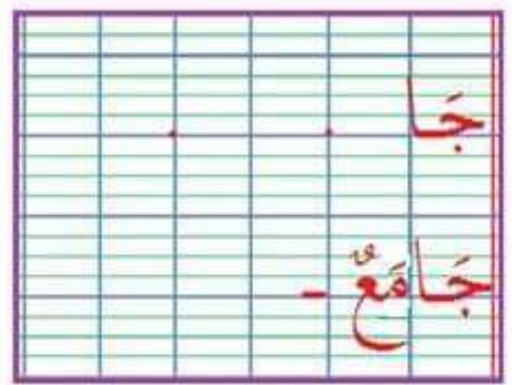 جَا . .
جَامَعٌ -